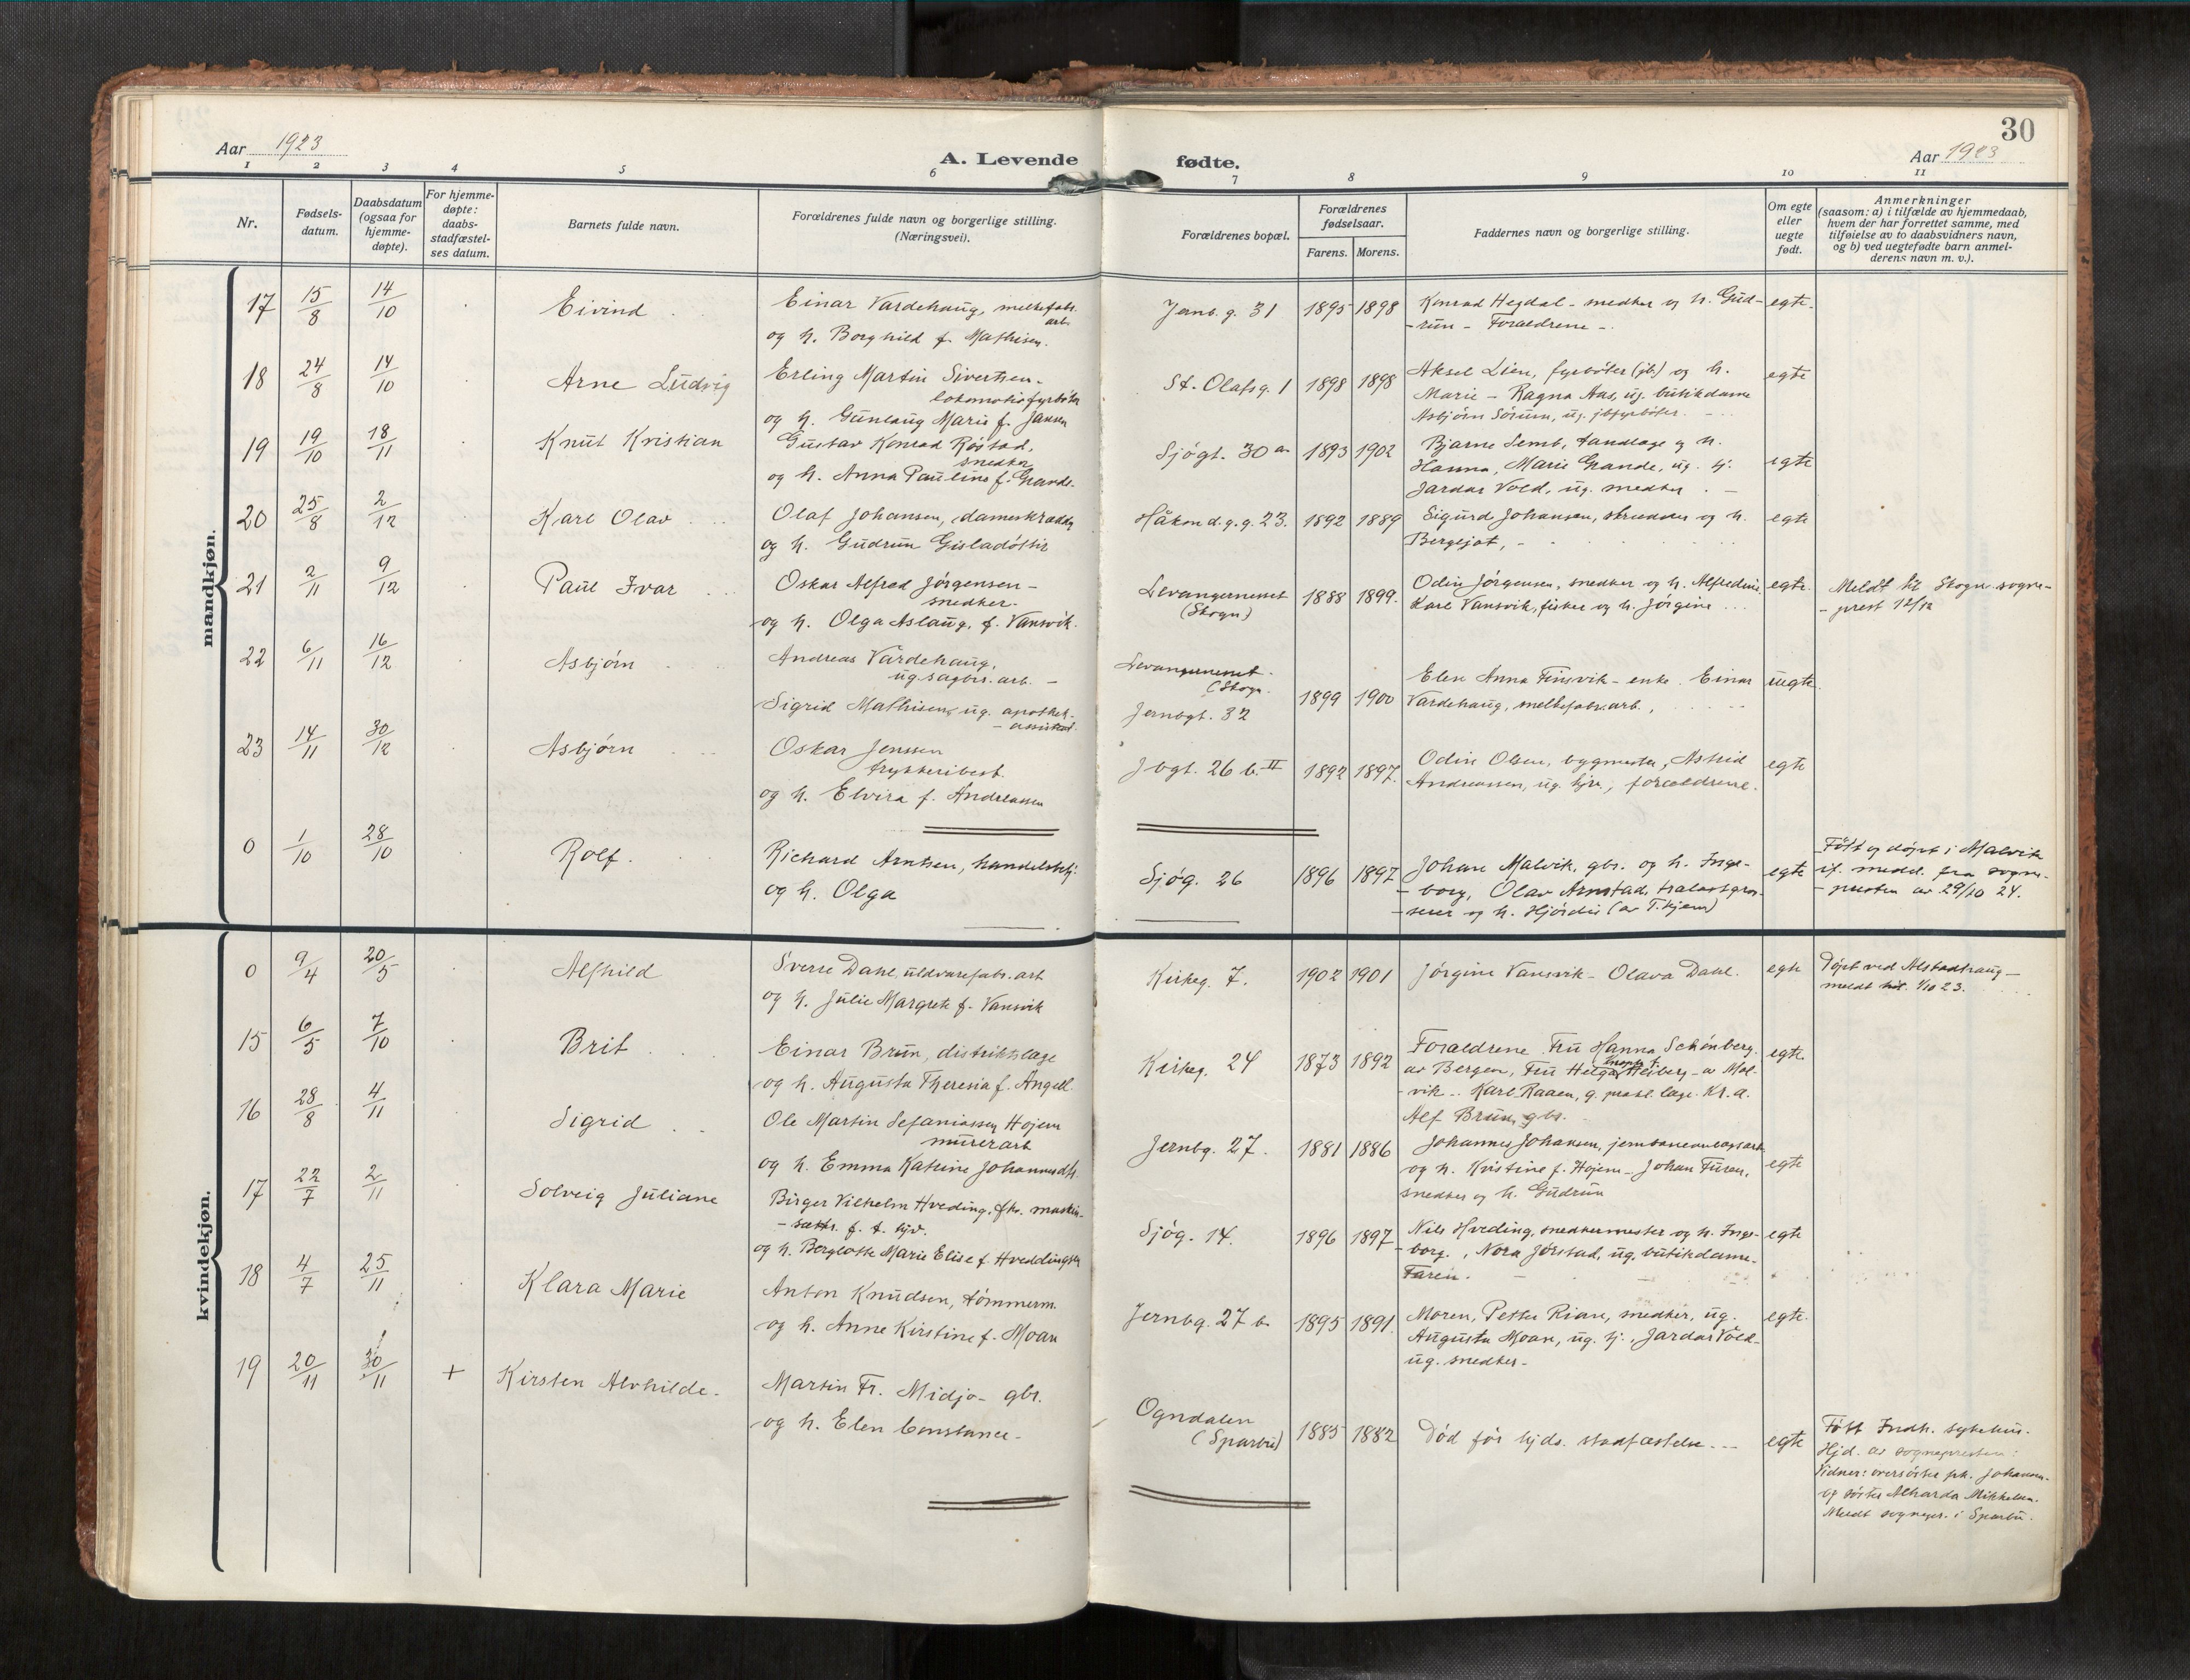 30
Aar 1923
A. Levende fødte.
Aar 1923
1 2 3 4 5 6 7 8 9 10 11
Nr.
Fødsels-
datum.
Daabsdatum
(ogsaa for
hjemme-
døpte).
For hjemme-
døpte:
daabs-
stadfæstel-
ses datum.
Barnets fulde navn.
Forældrenes fulde navn og borgerlige stilling.
(Næringsvei).
Forældrenes bopæl.
Forældrenes
fødselsaar.
Farens. Morens.
Faddernes navn og borgerlige stilling.
Om egte
eller
uegte
født.
Anmerkninger
(saasom: a) i tilfælde av hjemmedaab,
hvem der har forrettet samme, med
tilføielse av to daabsvidners navn,
og b) ved uegtefødte barn anmel-
derens navn m. v.).
mandkjøn.
17 15/8 14/10 Eivind
Einar Vardehaug, melkefabr.
arb.
og h. Borghild f. Mathisen.
Jernb. g. 31 1895 1898
Konrad Hegdal - snedker og h. Gud-
-run - Forældrene -.
egte.
18 24/8 14/10 Arne Ludvig
Erling Martin Sivertsen -
lokomotivfyrbøter
og h. Gunlaug Marie f. Jansen
St. Olafs g. 1 1898 1898
Aksel Lien, fyrbøter (jb.) og h.
Marie - Ragna Aas, ug. butikdame
Asbjørn Sørum, ug. jbfyrbøter.
egte
19 19/10 18/11 Knut Kristian
Gustav Konrad Røstad,
snedker
og h. Anna Pauline f. Grande.
Sjøgt. 30 a 1893 1902
Bjarne Semb, tandlæge og h.
Hanna, Marie Grande, ug. hj.
Jardar Vold, ug. snedker. -
egte
20 25/8 2/12 Karl Olav
Olaf Johansen, dameskrædder
og h. Gudrun Gisladóttir
Håkon d. g. g. 23. 1892 1889
Sigurd Johansen, skrædder og h.
Bergljot, -
egte
21 2/11 9/12 Paul Ivar
Oskar Alfred Jørgensen -
snedker -
og h. Olga Aslaug, f. Vansvik.
Levangernesset
(Skogn) 1888 1899.
Odin Jørgensen, snedker og h. Alfredine
Karl Vansvik, fisker og h. Jørgine
egte.
Meldt til Skogn sogne-
-prest 12/12
22 6/11 16/12 Asbjørn
Andreas Vardehaug,
ug. sagbr. arb. -
Sigrid Mathisen, ug. apothek-
-assistent.
Levangernesset
(Skogn.
Jernbgt. 32 1899 1900
Elen Anna Finsvik - enke. Einar
Vardehaug, melkefabr. arb.,
uegte.
23 14/11 30/12 Asbjørn
Oskar Jenssen
trykkeribest.
og h. Elvira f. Andreassen
Jbgt. 26 b. II 1892 1897.
Odin Olsen, bygmester, Astrid
Andreassen, ug. hjv., forældrene.
egte
0 1/10 28/10 Rolf.
Richard Arntsen, handelsbetj.
og h. Olga
Sjøg. 26 1896 1897
Johan Malvik, gbr. og h. Inge-
-borg, Olav Arnstad, trælastgros-
-serer og h. Hjørdis (av T.hjem)
egte
Født og døpt i Malvik
if. medd. fra sogne-
-presten av 29/10 24.
kvindekjøn.
0 9/4 20/5 Alfhild
Sverre Dahl, uldvarefabr. arb
og h. Julie Margrete f. Vansvik
Kirkeg. 7. 1902 1901
Jørgine Vansvik - Olava Dahl.
egte
Døpt ved Alstadhaug -
meldt hit. 1/10 23.
15 6/5 7/10 Brit
Einar Brun, distriktslæge
og h. Augusta Theresia f. Angell
Kirkeg. 24 1873 1892
Forældrene. Fru Hanna Schønberg.
av Bergen, Fru Helga Heiberg - av Mal-
-vik - Karl Raaen, q. prakt. læge. Kr. a.
Alf Brun, gbr.
egte.
16 28/8 4/11 Sigrid
Ole Martin Sefaniassen Hojem
murerarb
og h. Emma Katrine Johannesdtr.
Jernbg. 27. 1881 1886
Johannes Johansen, jernbaneanlægsarb
og h. Kristine f. Hojem - Johan Furan,
snedker og h. Gudrun
egte
17 22/7 2/11 Solveig Juliane
Birger Vilhelm Hveding, fhv. maskin-
-sættr. f. t. hjv.
og h. Berglotte Marie Elise f. Hveddingsen
Sjøg. 14. 1896 1897
Nils Hveding, snedkermester og h. Inge-
borg., Nora Jørstad, ug. butikdame.
Faren. -
egte
18 4/7 25/11 Klara Marie
Anton Knudsen, tømmerm.
og h. Anne Kirstine f. Moan
Jernbg. 27 b. 1895 1891.
Moren, Petter Rian, snedker, ug.
Augusta Moan, ug. hj., Jardar Vold -
ug. snedker -
egte.
19 20/11 30/11 + Kirsten Alvhilde.
Martin Fr. Midjo - gbr.
og h. Elen Constance -
Ogndalen
(Sparbu) 1885 1882
Død før hjds. stadfæstelse. --
egte
Født Indh. sykehus.
Hjd. av sognepresten:
Vidner: oversøster frk. Johansen.
og søster Alharda Mikkelsen.
Meldt sognepr. i Sparbu.